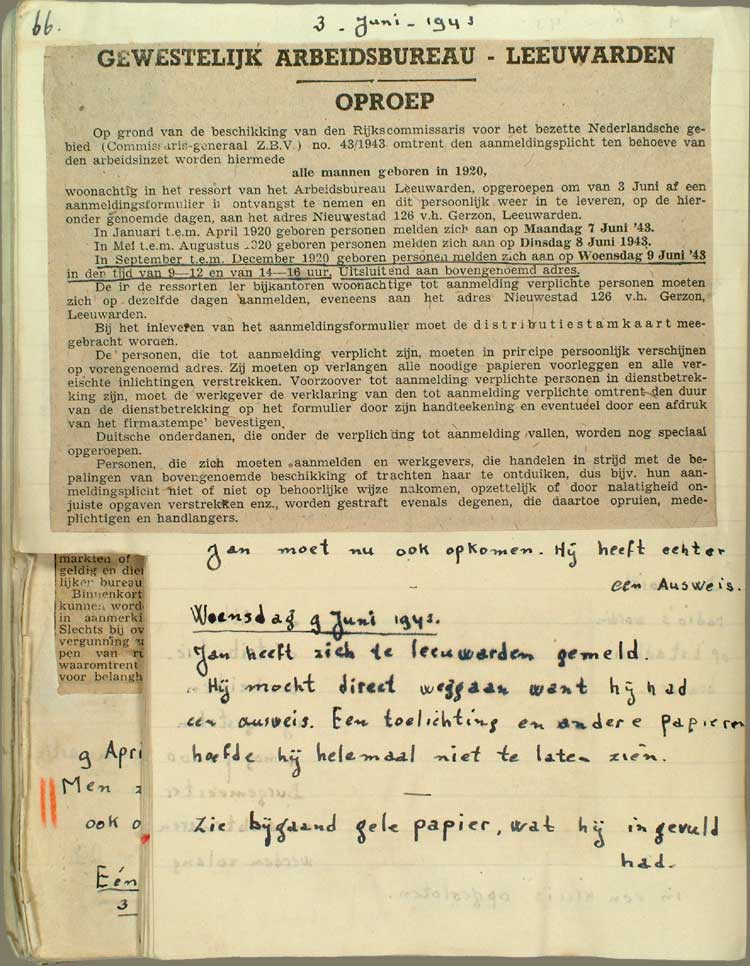 66.
3 - Juni - 1943
GEWESTELIJK ARBEIDSBUREAU - LEEUWARDEN
OPROEP
Op grond van de beschikking van den Rijkscommissaris voor het bezette Nederlandsche ge-
bied (Commissaris-generaal Z.B.V.) no. 43/1943 omtrent den aanmeldingsplicht ten behoeve van
den arbeidsinzet worden hiermede
alle mannen geboren in 1920,
woonachtig in het ressort van het Arbeidsbureau Leeuwarden, opgeroepen om van 3 Juni af een
aanmeldingsformulier in ontvangst te nemen en dit persoonlijk weer in te leveren, op de hier-
onder genoemde dagen, aan het adres Nieuwestad 126 v.h. Gerzon, Leeuwarden.
In Januari t.e.m. April 1920 geboren personen melden zich aan op Maandag 7 Juni '43.
In Mei t.e.m. Augustus 1920 geboren personen melden zich aan op Dinsdag 8 Juni 1943.
In September t.e.m. December 1920 geboren personen melden zich aan op Woensdag 9 Juni '43
in den tijd van 9—12 en van 14—16 uur. Uitsluitend aan bovengenoemd adres.
De in de ressorten der bijkantoren woonachtige tot aanmelding verplichte personen moeten
zich op dezelfde dagen aanmelden, eveneens aan het adres Nieuwestad 126 v.h. Gerzon,
Leeuwarden.
Bij het inleveren van het aanmeldingsformulier moet de distributiestamkaart mee-
gebracht worden.
De personen, die tot aanmelding verplicht zijn, moeten in principe persoonlijk verschijnen
op vorengenoemd adres. Zij moeten op verlangen alle noodige papieren voorleggen en alle ver-
eischte inlichtingen verstrekken. Voorzoover tot aanmelding verplichte personen in dienstbetrek-
king zijn, moet de werkgever de verklaring van den tot aanmelding verplichte omtrent den duur
van de dienstbetrekking op het formulier door zijn handteekening en eventueel door een afdruk
van het firmastempel bevestigen.
Duitsche onderdanen, die onder de verplichting tot aanmelding vallen, worden nog speciaal
opgeroepen.
Personen, die zich moeten aanmelden en werkgevers, die handelen in strijd met de be-
palingen van bovengenoemde beschikking of trachten haar te ontduiken, dus bijv. hun aan-
meldingsplicht niet of niet op behoorlijke wijze nakomen, opzettelijk of door nalatigheid on-
juiste opgaven verstrekken enz., worden gestraft evenals degenen, die daartoe opruien, mede-
plichtigen en handlangers.
Jan moet nu ook opkomen. Hij heeft echter
een Ausweis.
Woensdag 9 Juni 1943.
Jan heeft zich te leeuwarden gemeld.
Hij mocht direct weggaan want hij had
een ausweis. Een toelichting en andere papieren
hoefde hij helemaal niet te laten zien.
—
Zie bijgaand gele papier, wat hij ingevuld
had.
markten of
geldig en die
lijker bureau
Binnenkort
kunnen word
in aanmerki
Slechts bij ov
vergunning
pen van
waaromtrent
voor belangh
9 Apri
Men
ook o
Eén
3